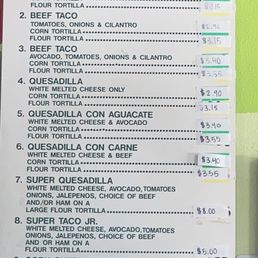 FLOUR TORTILLA $3.15
2. BEEF TACO
TOMATOES, ONIONS & CILANTRO
CORN TORTILLA $2.90
FLOUR TORTILLA $3.15
3. BEEF TACO
AVOCADO, TOMATOES, ONIONS & CILANTRO
CORN TORTILLA $3.40
FLOUR TORTILLA $3.55
4. QUESADILLA
WHITE MELTED CHEESE ONLY
CORN TORTILLA $2.90
FLOUR TORTILLA $3.15
5. QUESADILLA CON AGUACATE
WHITE MELTED CHEESE & AVOCADO
CORN TORTILLA $3.40
FLOUR TORTILLA $3.55
6. QUESADILLA CON CARNE
WHITE MELTED CHEESE & BEEF
CORN TORTILLA $3.40
FLOUR TORTILLA $3.55
7. SUPER QUESADILLA
WHITE MELTED CHEESE, AVOCADO,TOMATOES
ONIONS, JALEPENOS, CHOICE OF BEEF
AND/OR HAM ON A
LARGE FLOUR TORTILLA $8.00
8. SUPER TACO JR.
WHITE MELTED CHEESE, AVOCADO,TOMATOES
ONIONS, JALEPENOS, CHOICE OF BEEF
AND OR HAM ON A
FLOUR TORTILLA $5.00